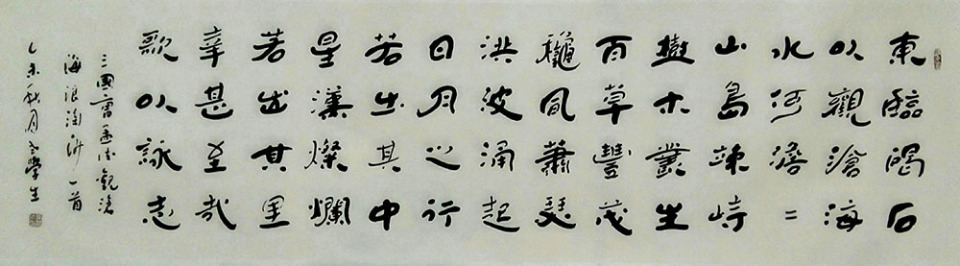 東臨碣石
以觀滄海
水河澹〻
山島竦峙
樹木叢生
百草豐茂
穐風蕭瑟
洪波涌起
日月之行
若出其中
星漢燦爛
若出其里
幸甚至哉
歌以詠志
三國曹孟德觀滄
海浪淘沙一首
乙未秋月學生